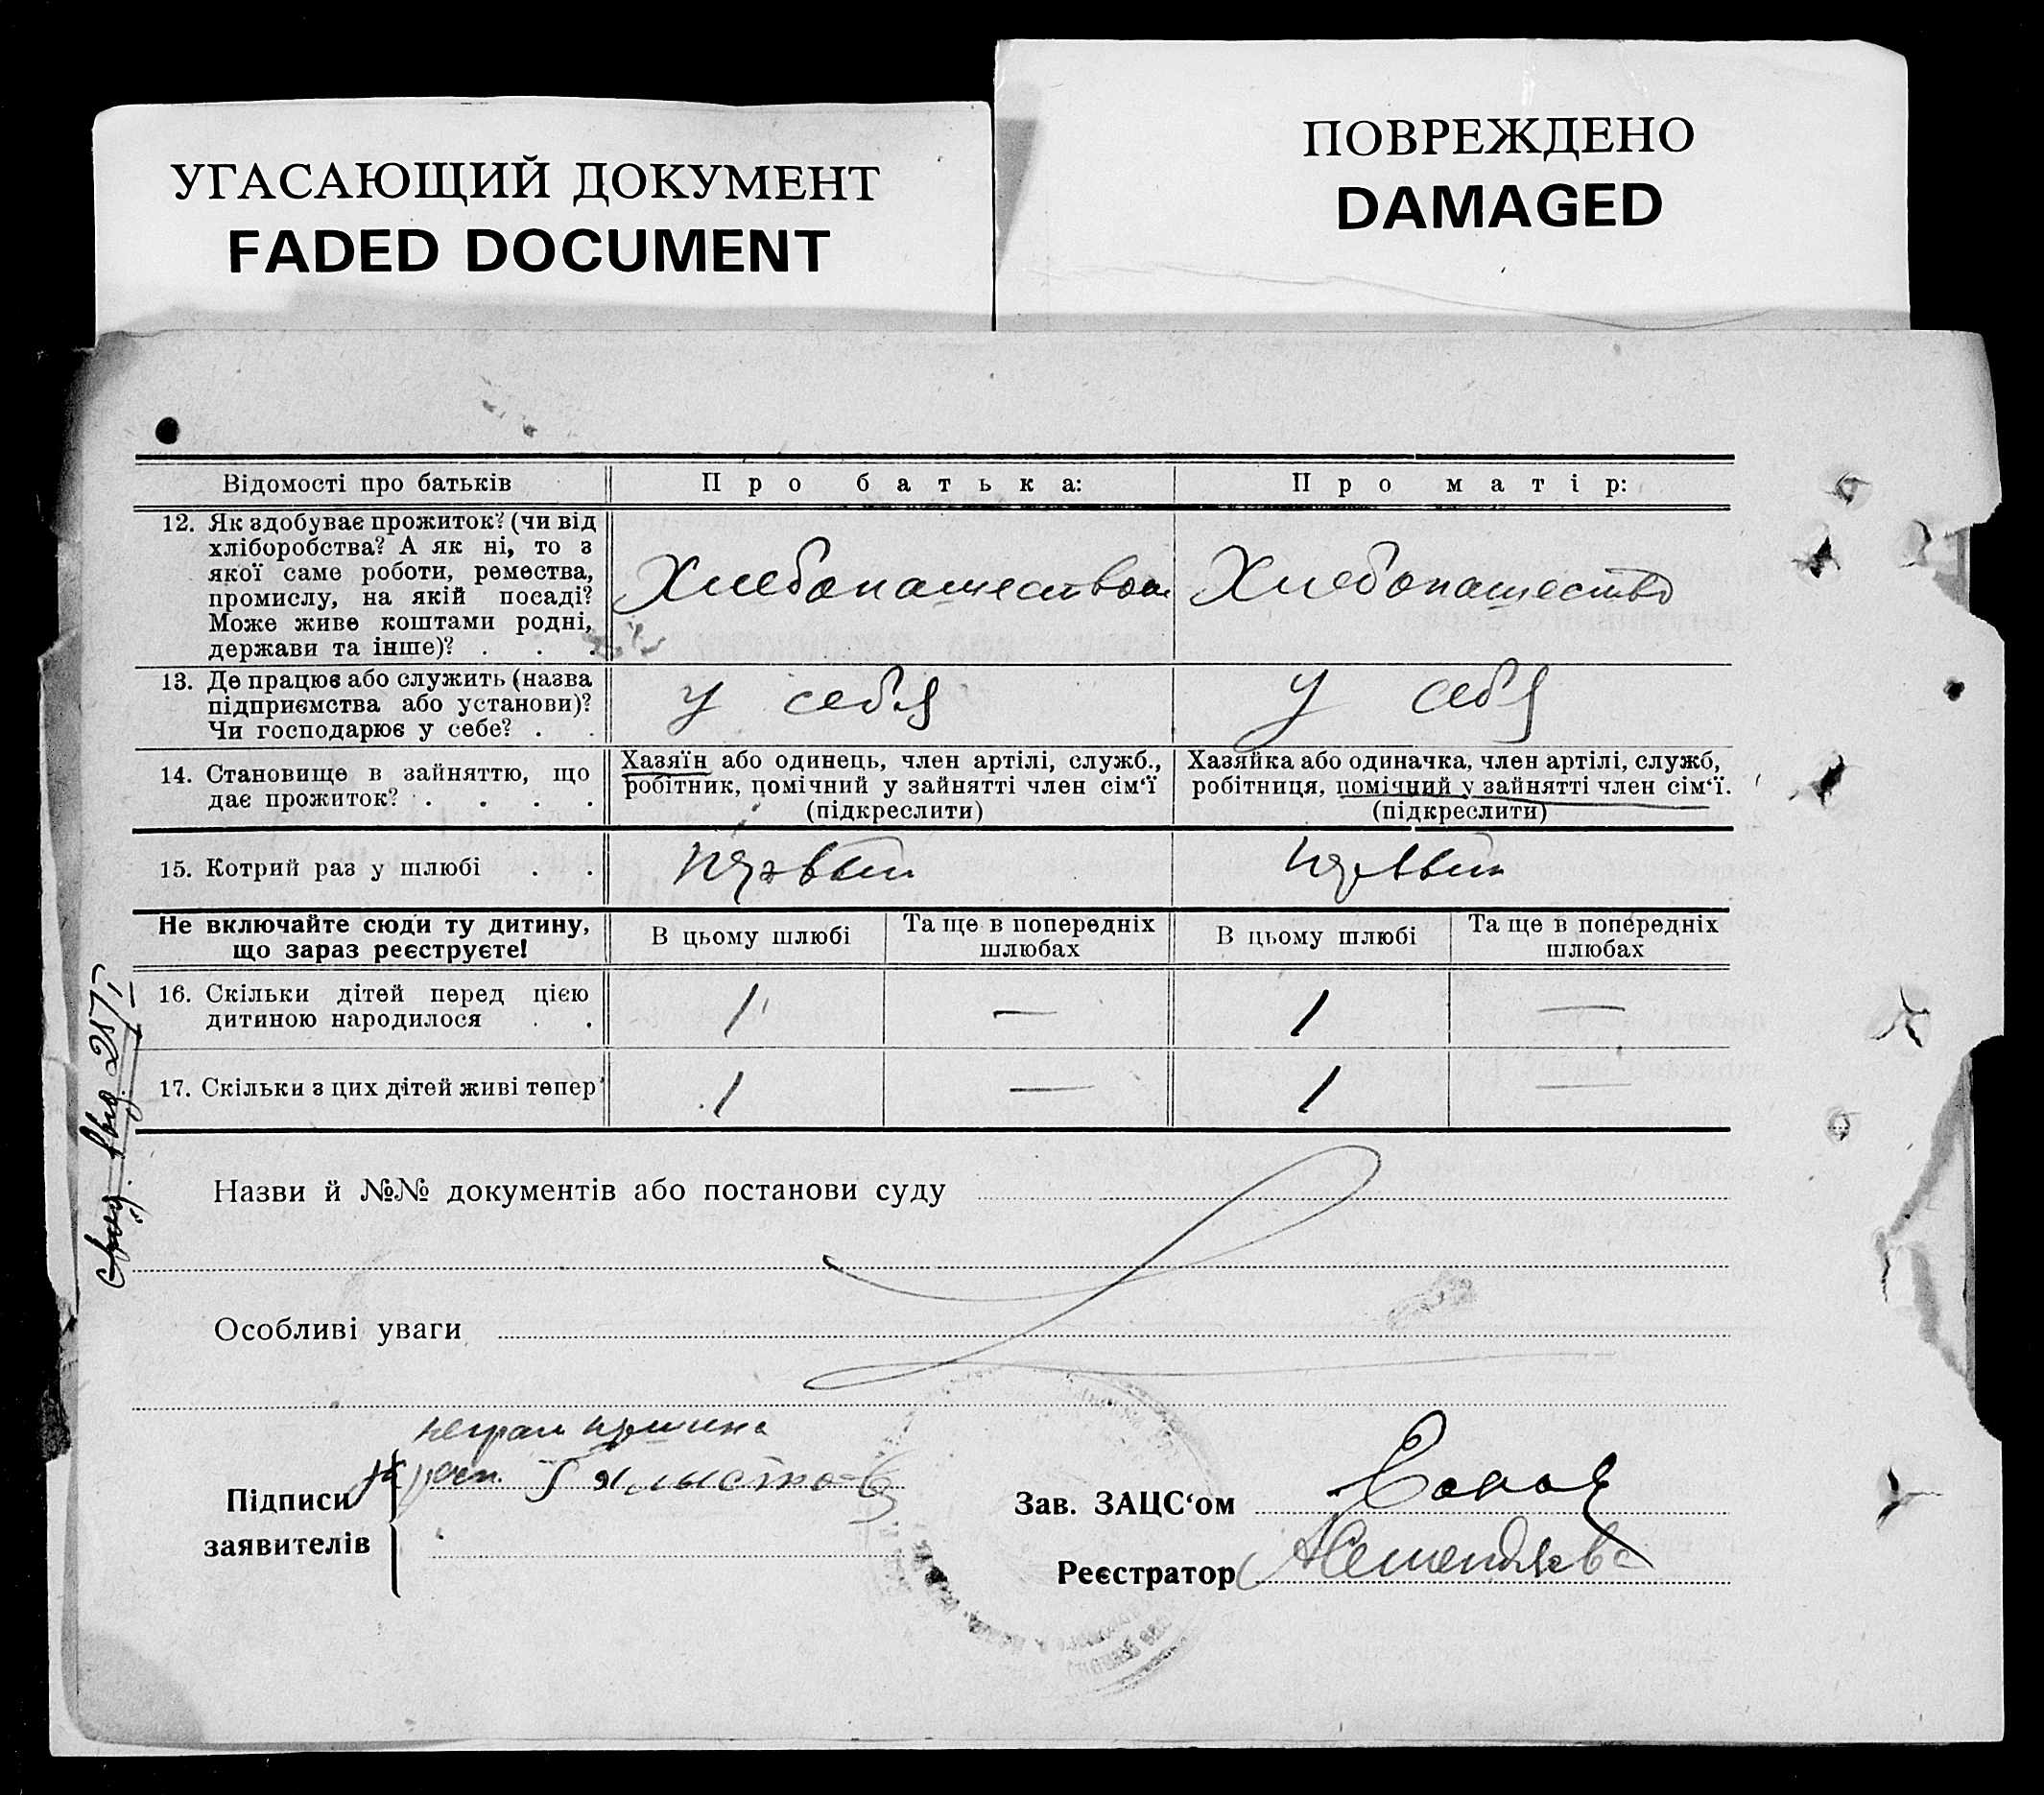 УГАСАЮЩИЙ ДОКУМЕНТ
FADED DOCUMENT
ПОВРЕЖДЕНО
DAMAGED
Відомості про батьків
Про батька:
Про матір:
12. Як здобуває прожиток? (чи від
хліборобства? А як ні, то з
якої саме роботи, ремества,
промислу, на якій посаді?
Може живе коштами родні,
держави та інше)? . . .
Хлебопашеством
Хлебопашество
13. Де працює або служить (назва
підприємства або установи)?
Чи господарює у себе? . .
у себя
у себя
14. Становище в зайняттю, що
дає прожиток? . . . .
Хазяїн або одинець, член артілі, служб.,
робітник, помічний у зайнятті член сім‘ї
(підкреслити)
Хазяйка або одиначка, член артілі, служб,
робітниця, помічний у зайнятті член сім‘ї.
(підкреслити)
15. Котрий раз у шлюбі . .
первый
первый
Не включайте сюди ту дитину,
що зараз реєструєте!
В цьому шлюбі
Та ще в попередніх
шлюбах
В цьому шлюбі
Та ще в попередніх
шлюбах
16. Скільки дітей перед цією
дитиною народилося . .
1
—
1
—
17. Скільки з цих дітей живі тепер
1
—
1
—
Назви й №№ документів або постанови суду
Особливі уваги
Підписи
заявителів
Зав. ЗАЦС‘ом
Реєстратор